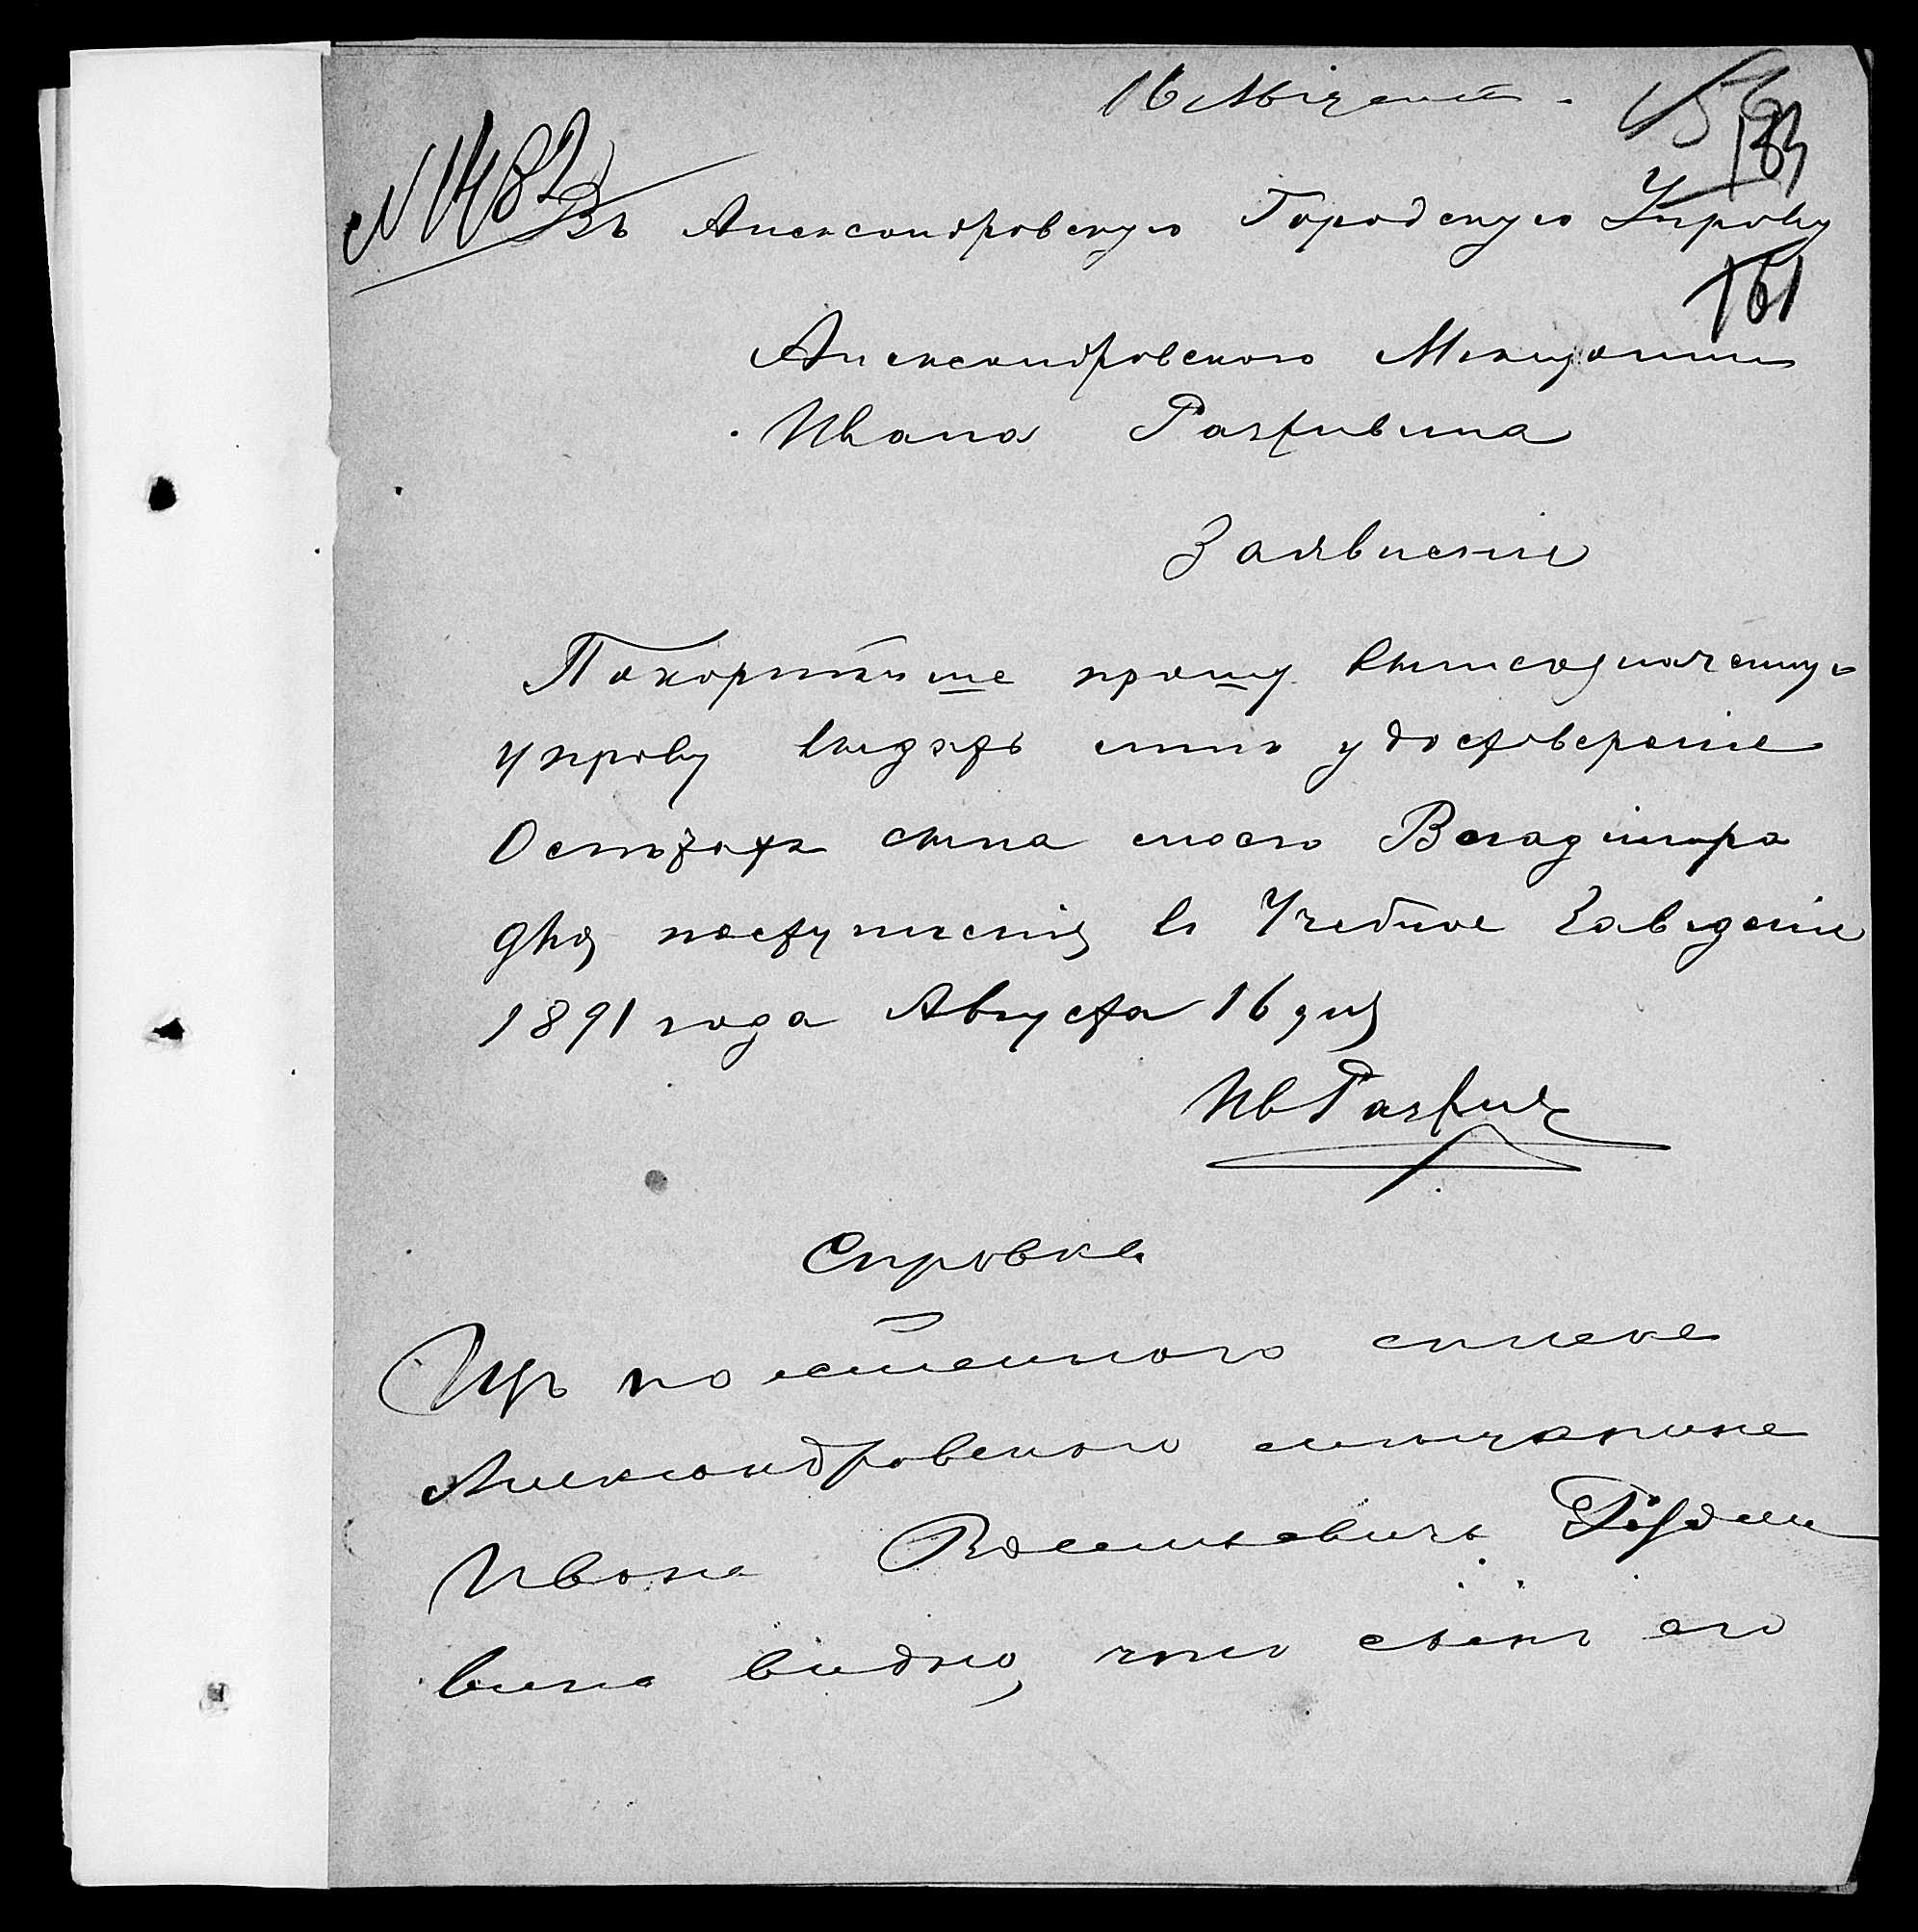 16
183
N 1482
Въ Александровскую Городскую Управу
161
Александровского Мещанина
Ивана
Заявленіе
Покорнейше прошу вышеозначенную
управу выдать мнѣ удостовереніе
о летахъ сына моего Владимира
для поступленія въ Учебное Заведеніе
1891 года Августа 16 дня
Ив
Справка
Изъ посемейного списка
Александровского мещанина
Ивана
вина видно, что сынъ его